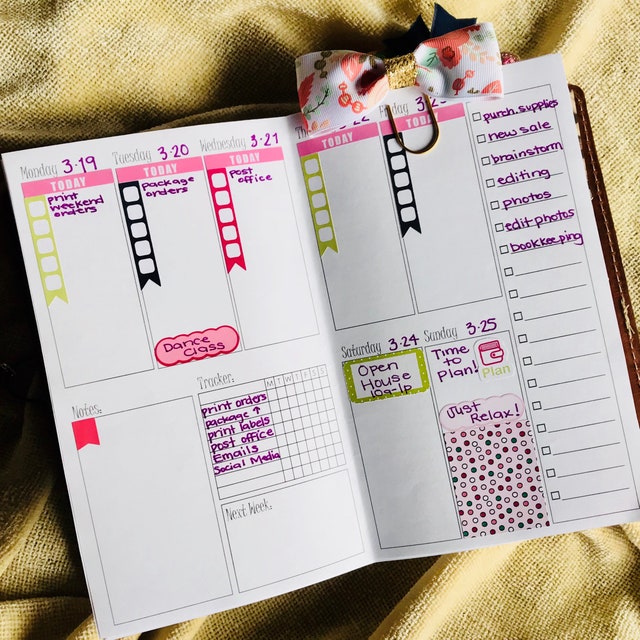 Monday 3.19
TODAY
print
weekend
orders
Tuesday 3.20
TODAY
package
orders
Dance
Class
Wednesday 3.21
TODAY
post
office
Notes:
Tracker:
M T W T F S S
print orders
package ↑
print labels
post office
Emails
Social Media
Next Week:
TODAY
TODAY
purch. supplies
new sale
brainstorm
editing
photos
edit photos
bookkeeping
Saturday 3.24
Open
House
10a-1p
Sunday 3.25
Time
to
Plan!
Plan
Just
Relax!